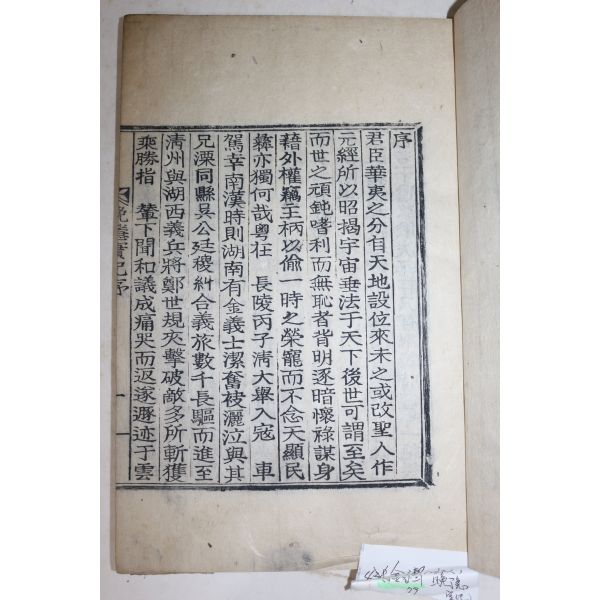 序
君臣華夷之分自天地設位來未之或改聖人作
元經所以昭揭宇宙垂法于天下後世可謂至矣
而世之頑鈍嗜利而無恥者背明逐暗懷祿謀身
藉外權竊主柄以偸一時之榮寵而不念天顯民
彝亦獨何哉粤在 長陵丙子淸大擧入寇 車
駕幸南漢時則湖南有金義士潔奮袂灑泣與其
兄深同縣吳公廷稷糾合義旅數千長驅而進至
淸州與湖西義兵將鄭世規夾擊破敵多所斬獲
乘勝指 輦下聞和議成痛哭而返遂遯迹于雲
實記序
一